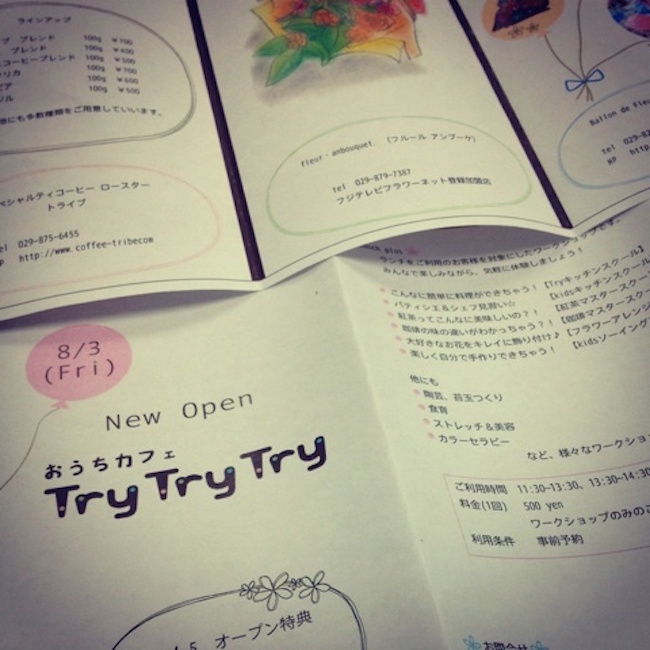 ラインアップ
ブレンド 100g ¥700
ブレンド 100g ¥400
コーヒーブレンド 100g ¥500
100g ¥700
100g ¥600
100g ¥500
他にも多数種類をご用意しています。
ペシャルティコーヒー ロースター
トライブ
tel 029-875-6455
HP http://www.coffee-tribecom
fleur・anbouquet. (フルール アンブーケ)
tel 029-879-7387
フジテレビフラワーネット登録加盟店
Ballon de Fleu
tel 029-8
HP http
8/3
(Fri)
New Open
おうちカフェ
Try Try Try
オープン特典
plus
ランチをご利用のお客様を対象にしたワークショップです。
みんなで楽しみながら、気軽に体験しましょう!
こんなに簡単に料理ができちゃう!【Tryキッチンスクール】
パティシエ&シェフ見習い☆ 【kidsキッチンスクール】
紅茶ってこんなに美味しいの?!! 【紅茶マスタースクー
珈琲の味の違いがわかっちゃう?! 【珈琲マスタースク
大好きなお花をキレイに飾り付け♪ 【フラワーアレンジ
楽しく自分で手作りできちゃう! 【kidsソーイング
他にも
陶芸、苔玉つくり
食育
ストレッチ&美容
カラーセラピー
など、様々なワークショ
ご利用時間 11:30-13:30、13:30-14:30
料金(1回) 500 yen
ワークショップのみのご
利用条件 事前予約
お問合せ